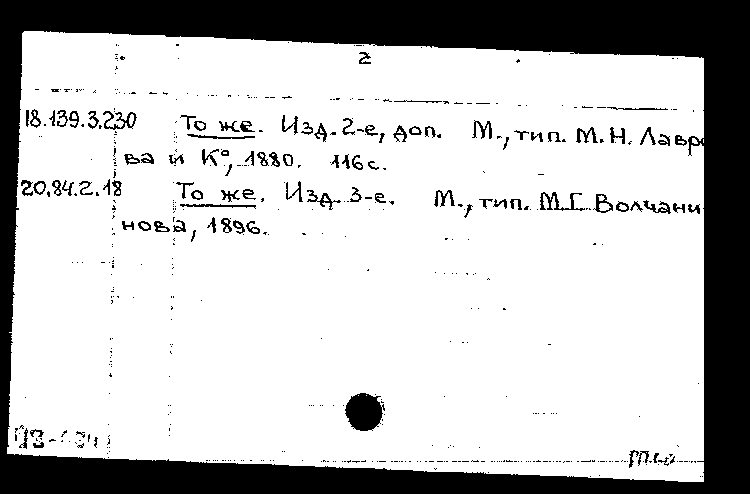 2
18.139.3.230 То же. Изд. 2-е, доп. М., тип. М.Н. Лавро
ва и К°, 1880. 116 с.
20.84.2.18 То же. Изд. 3-е. М., тип. М.Г. Волчани-
нова, 1896.